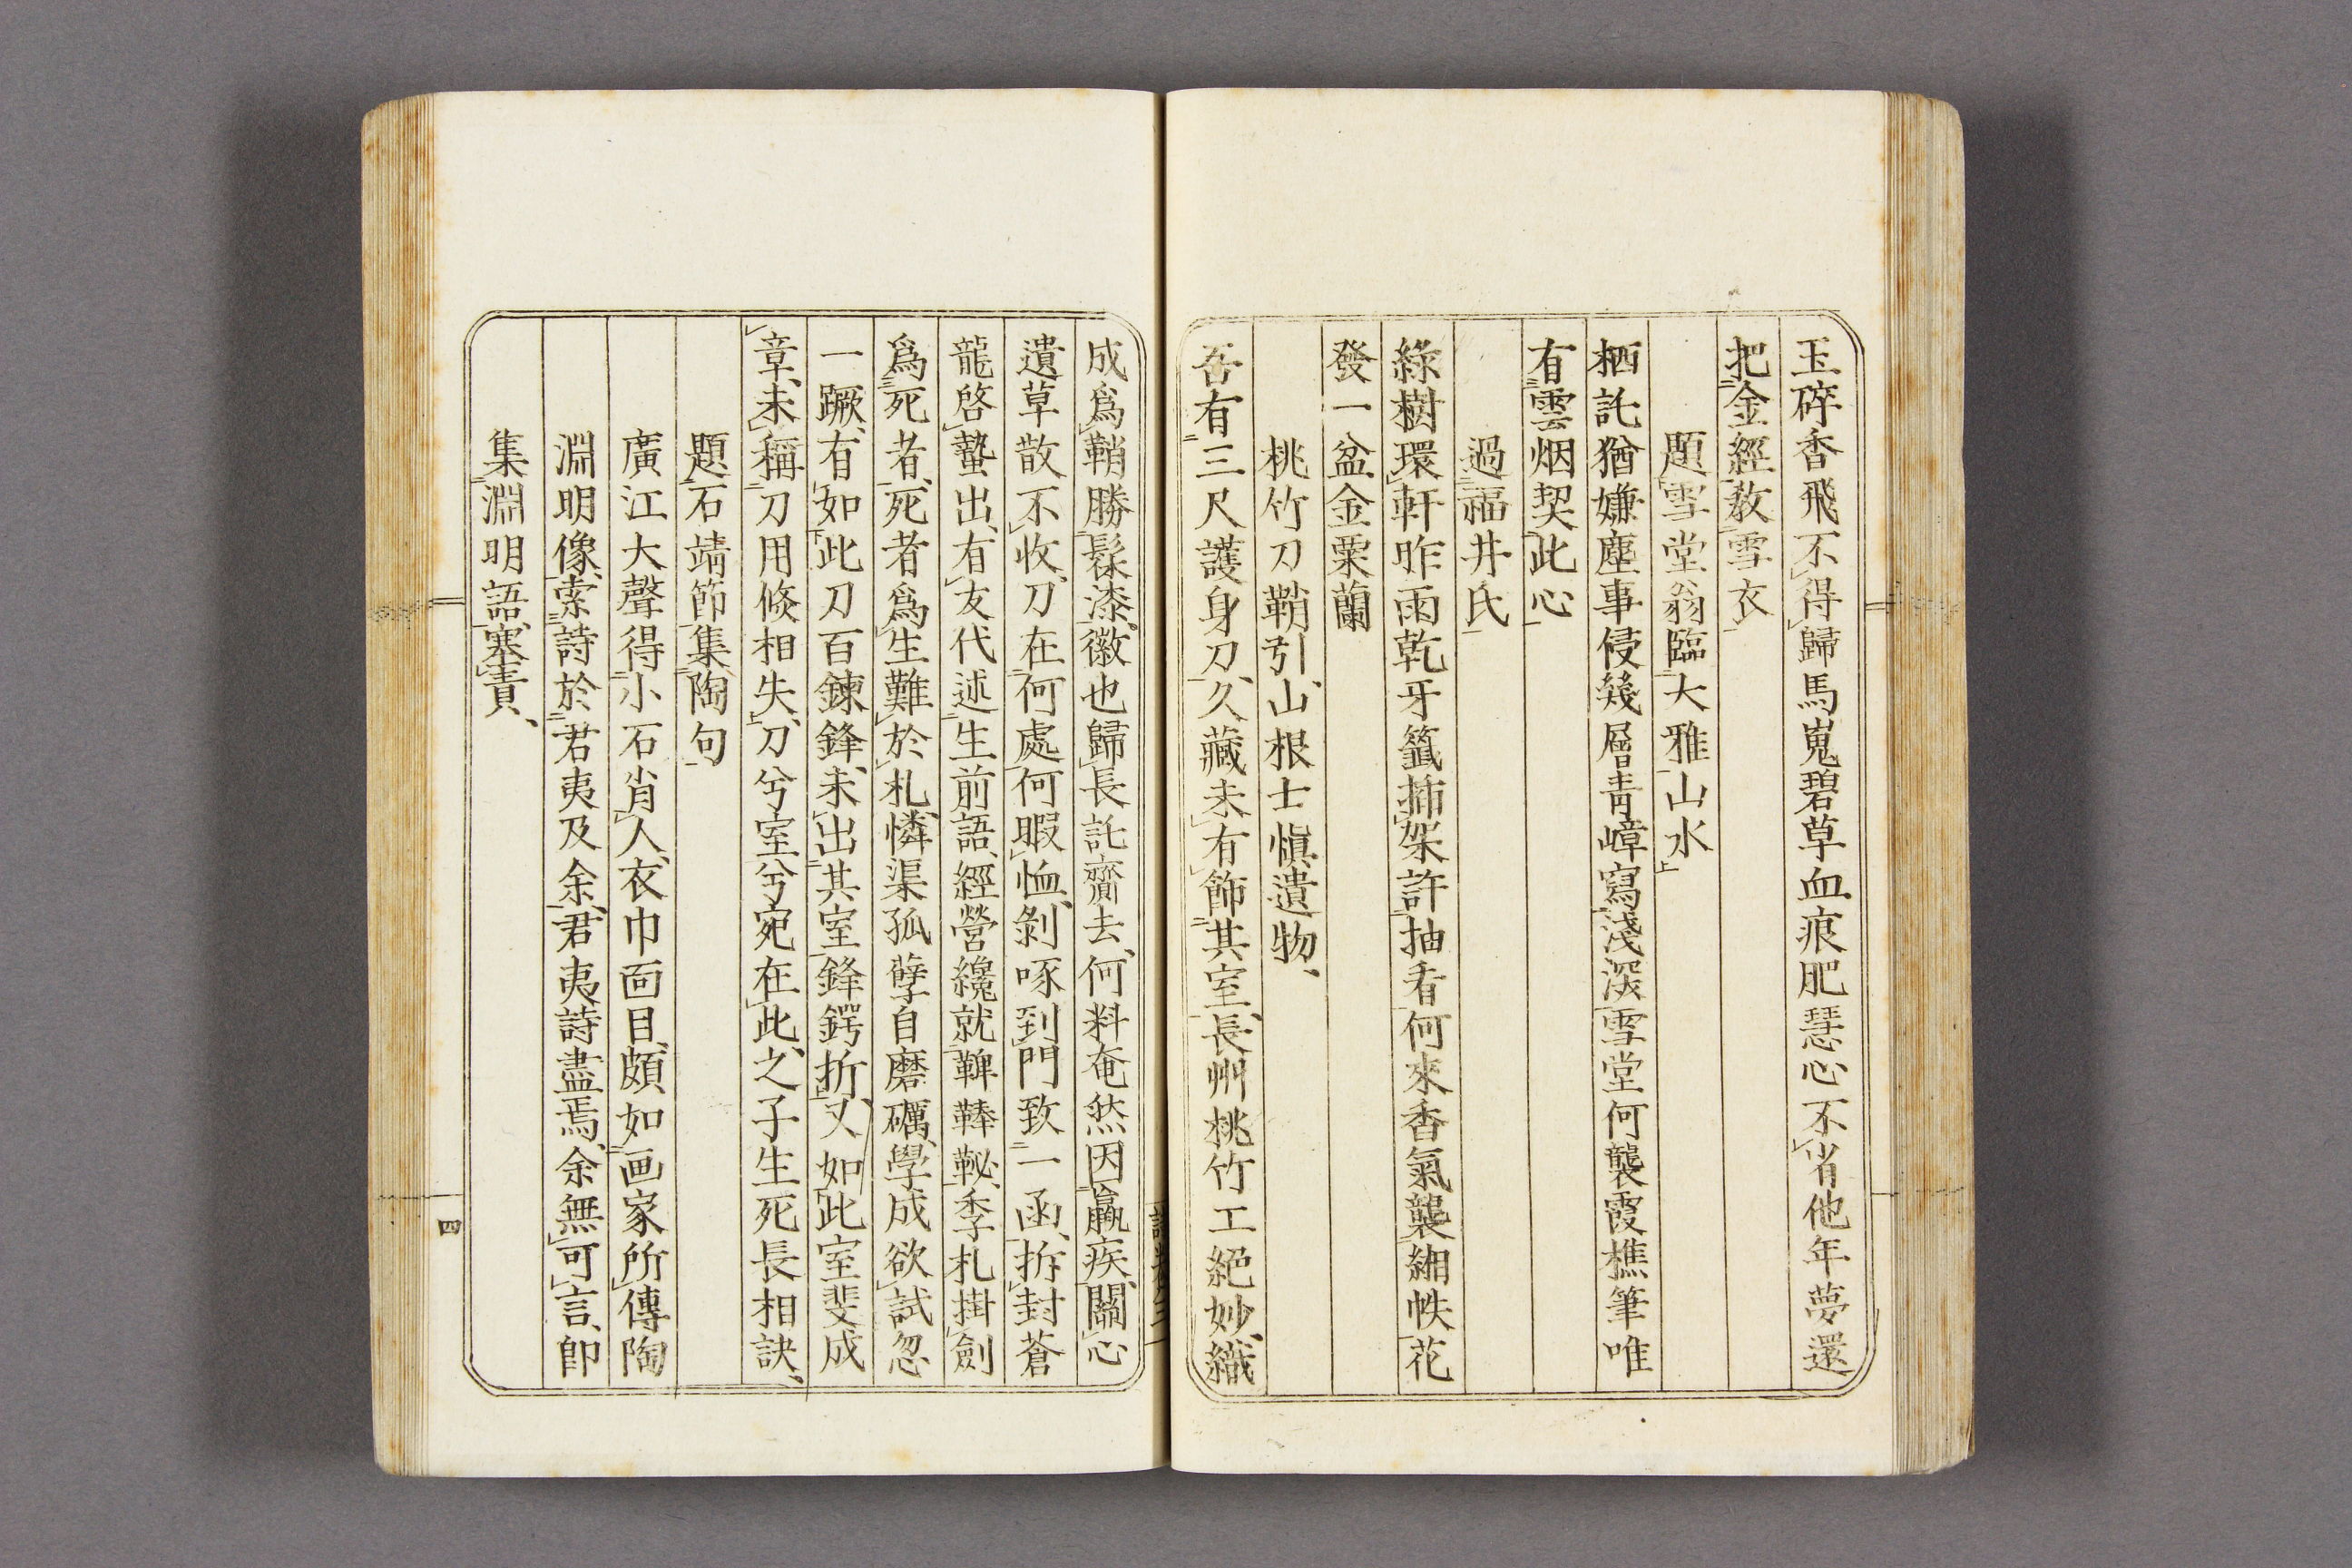 玉碎香飛不得歸馬嵬碧草血痕肥慧心不省他年夢還
把金經教雪衣
題雪堂翁臨大雅山水
栖託猶嫌塵事侵幾層青嶂寫淺深雪堂何襲霞樵筆唯
有雲烟契此心
過福井氏
綠樹環軒昨雨乾牙籤插架許抽看何來香氣襲緗帙花
發一盆金粟蘭
桃竹刀鞘引、山根士愼遺物、
吾有三尺護身刀、久藏未有飾其室、長州桃竹工絕妙、織
成爲鞘勝髹漆、徽也歸長託齎去、何料奄然因羸疾、關心
遺草散不收、刀在何處何暇恤、剝啄到門致一函、拆封蒼
龍啓蟄出、有友代述生前語、經營纔就鞞鞛鞘、季札掛劍
爲死者、死者爲生難於札、憐渠孤孽自磨礪、學成欲試忽
一蹶、有如此刀百鍊鋒、未出其室鋒鍔折、又如此室斐成
章、未稱刀用倐相失、刀兮室兮宛在此、之子生死長相訣、
題石靖節集陶句
廣江大聲得小石肖人、衣巾面目、頗如画家所傳陶
淵明像、索詩於君夷及余、君夷詩盡焉、余無可言、卽
集淵明語、塞責、
四